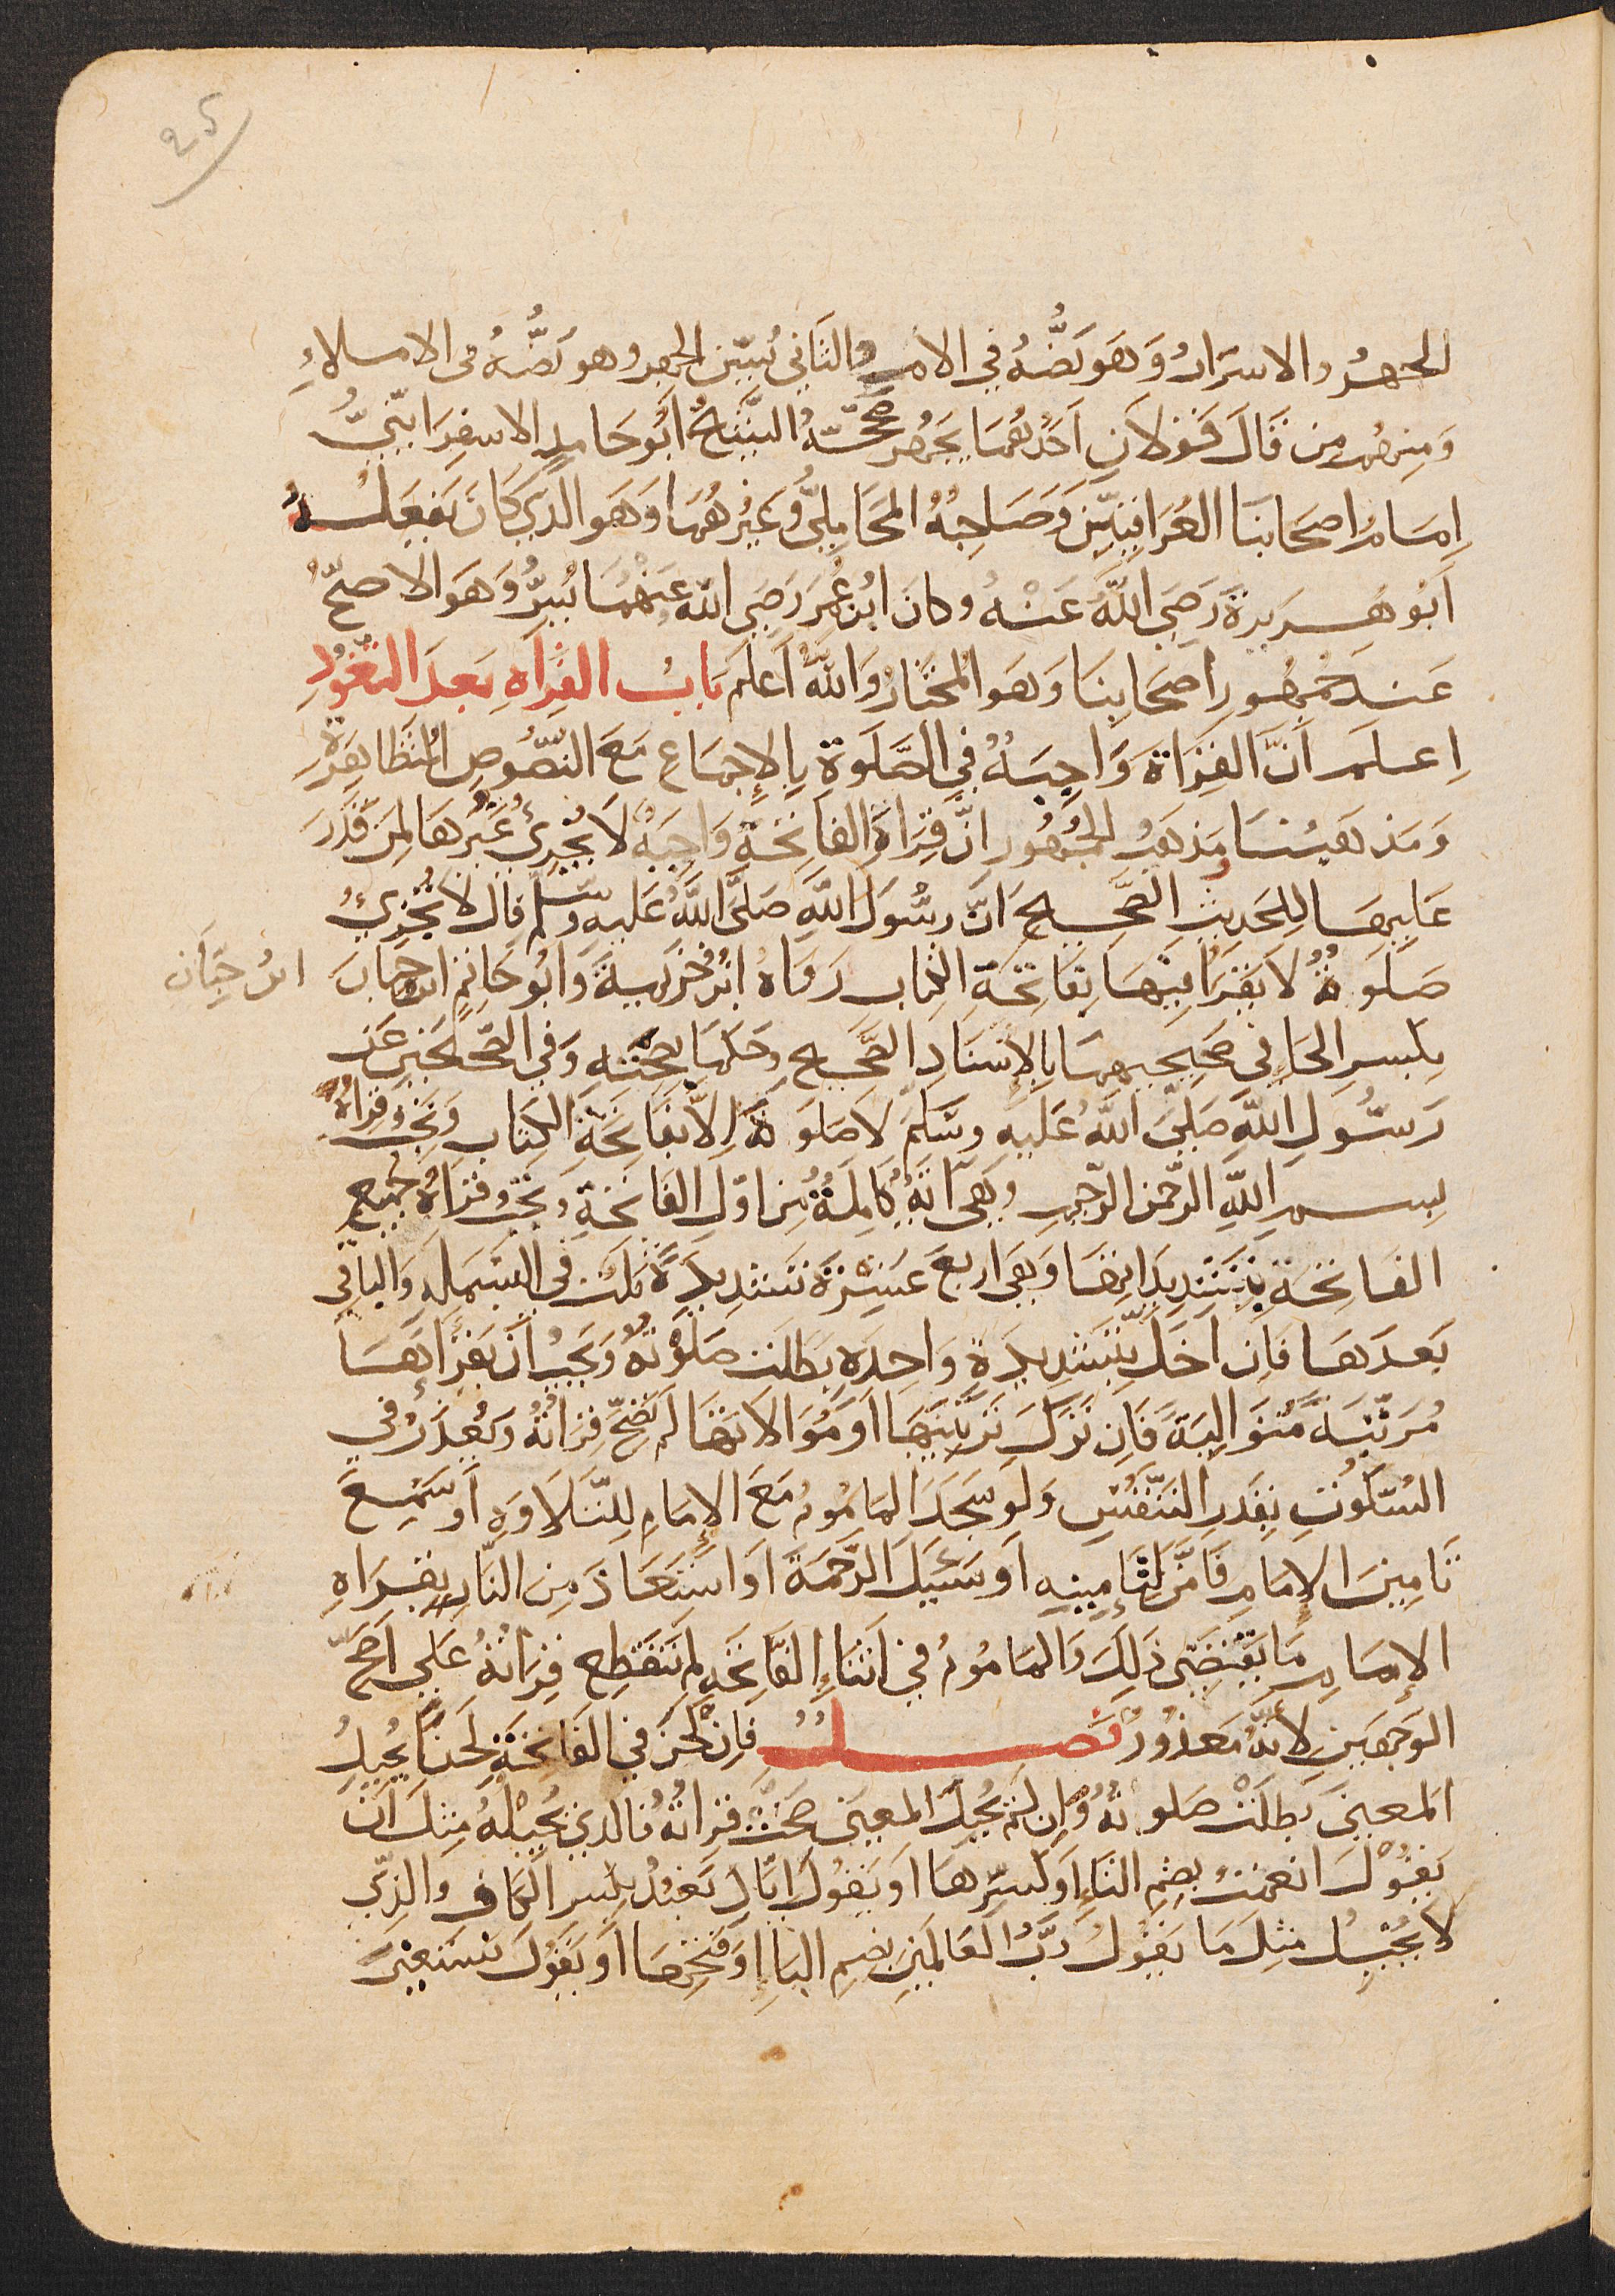 25
الجهرُ والاسرَارُ وَهَو نَصُّهُ في الأم والثَاني يُسَنّ الجهر وهو نَصُّهُ فى الاملاءِ
وَمِنهُم من قَالَ قَولاَنِ اَحَدهُمَا يَجهر صَحَّحَهُ الشَّيخُ اَبُو حَامدٍ الاسفِرَاينيُّ
اِمَامُ اصحَابنَا العرَاقيِّينَ وَصَاحِبُهُ المحَامِليُّ وَغَيرُهُمَا وَهَو الَّذِي كَانَ يَفعَلهُ
اَبُو هُريرةَ رَضيَ اللَّهُ عَنْهُ وكانَ ابْن عُمَر رَضيَ الله عَنْهُمَا يُسِرُّ وَهَوَ الاصحّ
عَندَ جُمهُورِ اَصحَابِنَا وَهَو المُختَارُ وَاللَّهُ اَعلَم بَابُ القِرَاَه بَعدَ التَّعَوُّدِ
اِعلَم اَنَّ القِرَاةَ وَاجِبَةٌ في الصَّلَوةِ بِالإِجمَاعِ مَعَ النّصُوصِ المُتَظَاهِرَةِ
وَمَذهَبُنَا ومَذهَبُ الجُمهُورِ انَّ قِرَاةَ الفَاتِحَةِ وَاجِبَةٌ لاَ يُجْزِئُ غَيرُهَا لِمَن قَدَرَ
عَلَيهَا لِلحَدِيثِ الصَّحِيحِ اَنَّ رسُولَ اللّهِ صَلَّى اللَّهُ عَليهِ وسَلَّم قالَ لاَ تُجْزِئُ
صَلَوةٌ لاَ يَقرَاُ فِيهَا بِفَاتِحَةِ الكِتَابِ رَوَاهُ ابْنُ خُزَيمَةَ وَابُو حَاتِمٍ ابن حِبَانَ
ابنُ حِبَّان
بِكَسرِ الحَاءِ في صَحِيحَيهمَا بِالإِسْنَادِ الصَّحِيحِ وحَكمَا بِصِحّتِهِ وَفي الصّحيحَينِ عَن
رَسُولِ اللّهِ صَلىّ اللَّهُ عَلَيهِ وسَلَّم لاَ صَلَوةَ اِلاَّ بفَاتِحَةِ الكتَابِ وَتَجِبُ قرَاةُ
بِسم اللهِ الرَّحمن الرَّحِيم وهيَ آيَةٌ كَامِلَةٌ مِن اوَّلِ الفَاتِحَةِ وَتَجبُ قرَاةُ جَميعِ
الفَاتِحَةِ بِتَشدِيدَاتِهَا وَهيَ اربَعَ عَشرَةَ تَشدِيدَةً ثَلث فى البَسمَلَهِ وَالبَاقي
بَعدَهَا فَاِن اَخَلَّ بِتَشدِيدَةٍ وَاحِدَهٍ بَطلَت صَلَوتُهُ وَيَجِبُ اَن يَقرَاَهَا
مُرَتَّبَةً مُتوَالِيَةً فَاِن تَرَكَ تَرتِيبَهَا اَو مُوَالاَتهَا لَم تَصحّ قِرَاتُهُ وَيُعذَرُ في
السُّكُوتِ بِقَدرِ التَّنَفُّسِ وَلَو سَجَدَ المَامُومُ مَعَ الإِمَامِ لِلتّلاَوَهِ اَو سَمِعَ
تَامِينَ الاِمَامِ فَاَمَّنَ لِتَامِينِهِ اَو سَئَلَ الرَّحمَةَ اَو اسْتَعَاذَ مِنَ النَّارِ لِقِرَاهِ
الإِمَامِ مَا يَقتَضِي ذَلِكَ وَالمَامُومُ في اَثنَاءِ الفَاتِحَهِ لَم تَنقَطِع قِرَاتُهُ عَلى اصَحِّ
الوَجهَينِ لاَنَّهُ مَعذُورٌ فَصلٌ فاِن لَحَنَ في الفَاتِحَةِ لَحنًا يُحِيلُ
المَعنىَ بَطلَتْ صَلوتُهُ وَاِن لَم يُحِلّ المَعنىَ صَحَّتْ قرَاتُهُ فَالَّذِي يُحِيلُهُ مِثلَ اَن
يَقُولَ انعَمتُ بِضَم التَّاءِ اَو كَسرِهَا اَو يَقُولَ ايَّاكِ نَعبُدُ بِكَسرِ الكَافِ والَّذي
لاَ يُحِيلُ مثلَ مَا يَقُولُ رَبُّ العَالَمِينَ بضَمِّ البَاءِ اَو فَتحِهَا اَو يَقُولَ نَستَعِينَ